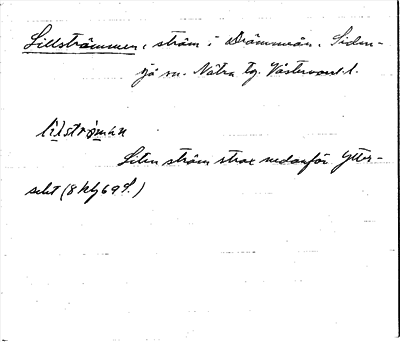 Lillströmmen, ström i Drömmeån. Siden-
sjö sn. Nätra tg. Västernorrl. l.
lìlstrø̀mǝn
Liten ström strax nedanför Ytter-
selet (8 Hj 69 f.)